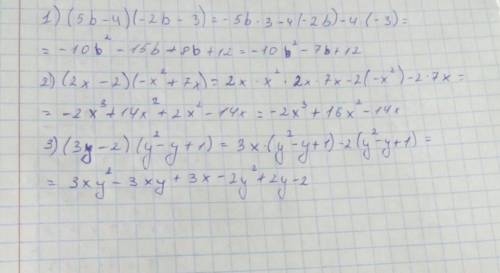 1) (5b-4)(-2b-3)=-5b·3-4(-2b)-4·(-3)=
=-10b²-15b+8b+12=-10b²-7b+12
2) (2x-2)(-x²+7x)=2x·x²·2x·7x-2(-x²)-2·7x=
=-2x³+14x²+2x²-14x=-2x³+16x²-14x
3) (3y-2)(y²-y+1)=3x·(y²-y+1)-2(y²-y+1)=
=3xy²-3xy+3x-2y²+2y-2